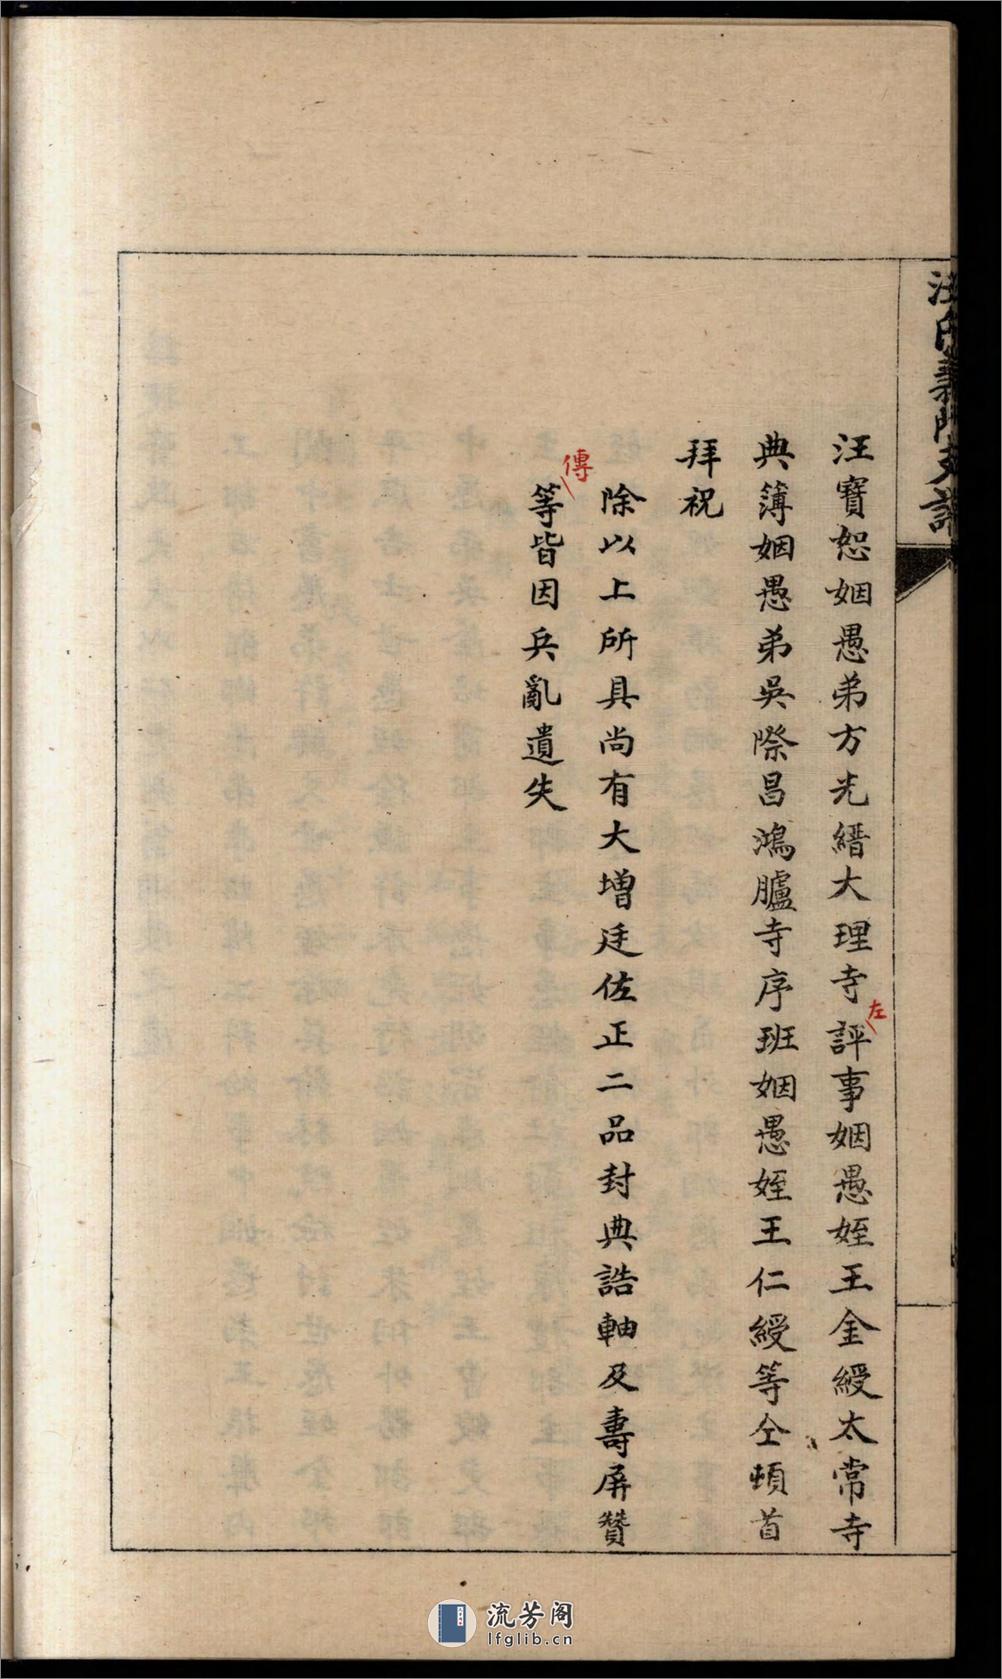 汪氏義門支譜
汪寶恕姻愚弟方光縉大理寺左評事姻愚姪王金綬太常寺
典簿姻愚弟吳際昌鴻臚寺序班姻愚姪王仁綬等仝頓首
拜祝
除以上所具尚有大增廷佐正二品封典誥軸及壽屏贊
傳等皆因兵亂遺失
流芳阁
lfglib.cn